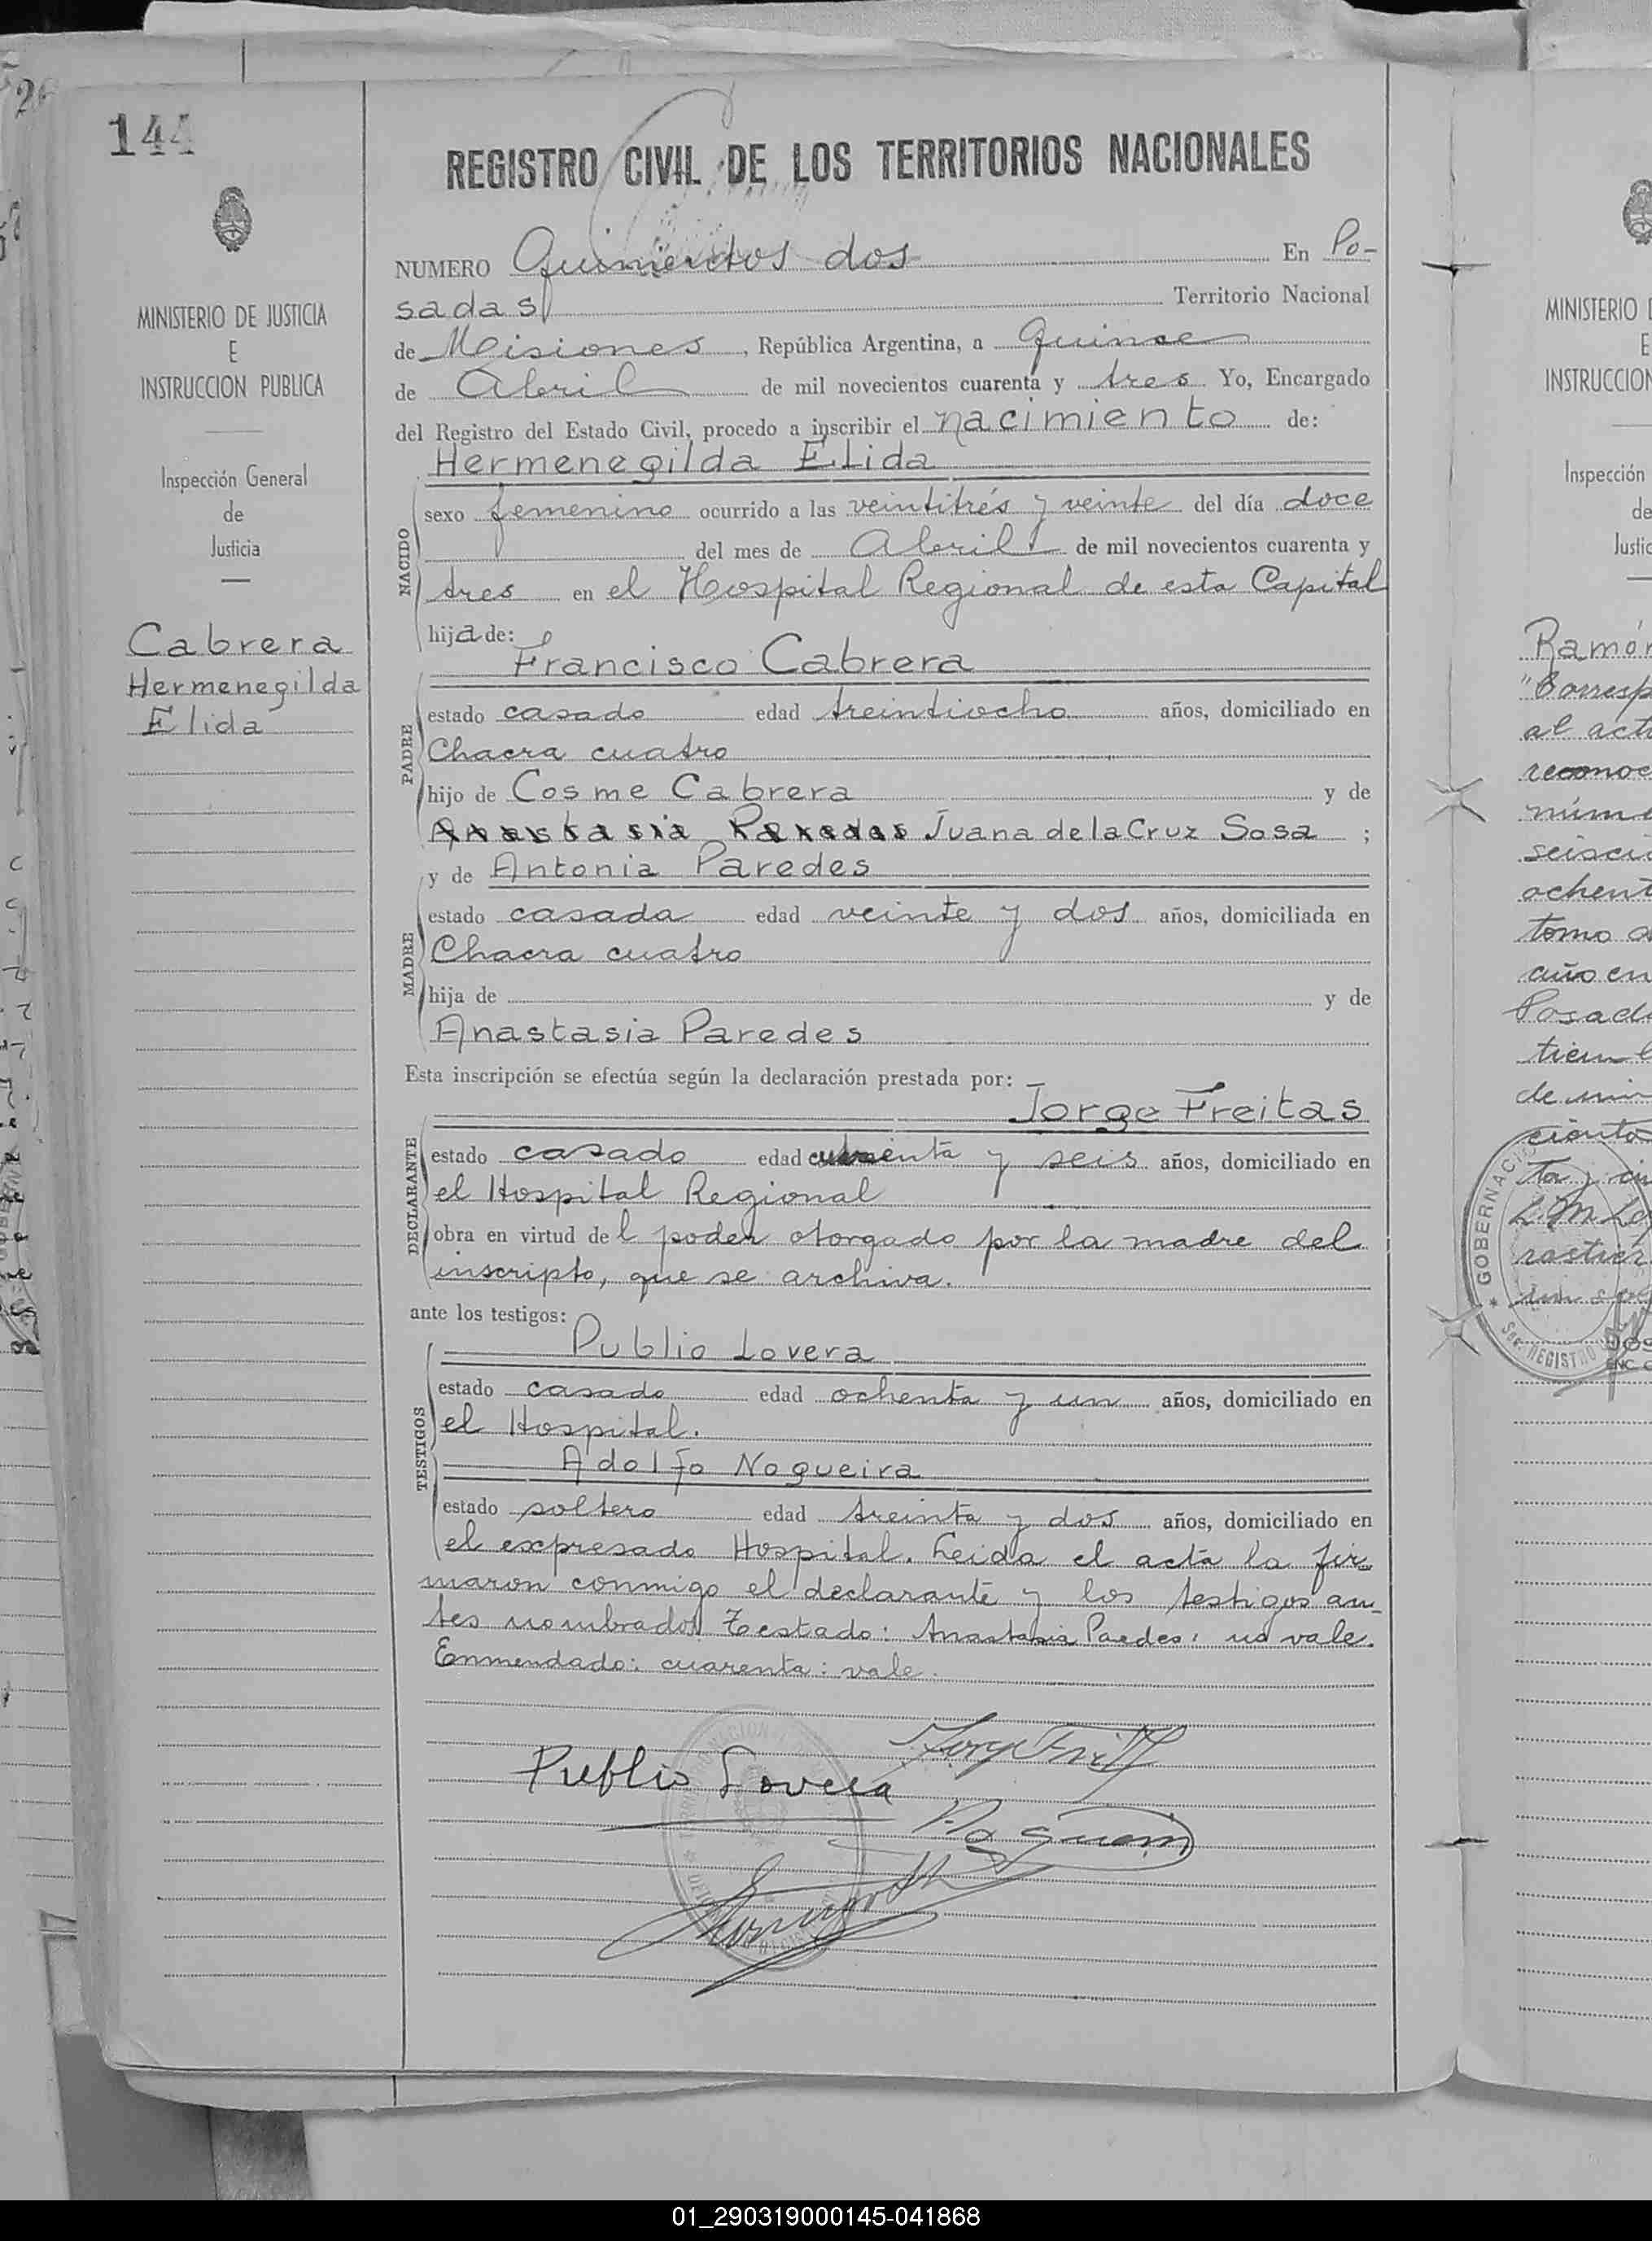 144
REGISTRO CIVIL DE LOS TERRITORIOS NACIONALES
MINISTERIO DE JUSTICIA
E
INSTRUCCION PUBLICA
Inspección General
de
Justicia
Cabrera
Hermenegilda
Elida
NUMERO Quinientos dos En Po-
sadas Territorio Nacional
de Misiones, República Argentina, a quince
de Abril de mil novecientos cuarenta y tres Yo, Encargado
del Registro del Estado Civil, procedo a inscribir el nacimiento de:
Hermenegilda Elida
NACIDO
sexo femenino ocurrido a las veintitrés y veinte del día doce
del mes de Abril de mil novecientos cuarenta y
tres en el Hospital Regional de esta Capital
hija de:
Francisco Cabrera
PADRE
estado casado edad treintiocho años, domiciliado en
Chacra cuatro
hijo de Cosme Cabrera y de
Anastasia Paredes Juana de la Cruz Sosa ;
y de Antonia Paredes
MADRE
estado casada edad veinte y dos años, domiciliada en
Chacra cuatro
hija de y de
Anastasia Paredes
Esta inscripción se efectúa según la declaración prestada por:
Jorge Freitas
DECLARANTE
estado casado edad cuarenta y seis años, domiciliado en
el Hospital Regional
obra en virtud del poder otorgado por la madre del
inscripto, que se archiva.
ante los testigos:
Publio Lovera
TESTIGOS
estado casado edad ochenta y un años, domiciliado en
el Hospital.
Adolfo Nogueira
estado soltero edad treinta y dos años, domiciliado en
el expresado Hospital. Leida el acta la fir
maron conmigo el declarante y los testigos an-
tes nombrados Testado: Anastasia Paredes: no vale.
Enmendado: cuarenta: vale.
Publio Lovera
MINISTERIO
E
INSTRUCCION
Inspección
de
Justic
Ramón
"Corresp
al act
recono
núm
seisci
ochent
tomo
año en
Posad
GOBERNACI
REGISTRO
01_290319000145-041868